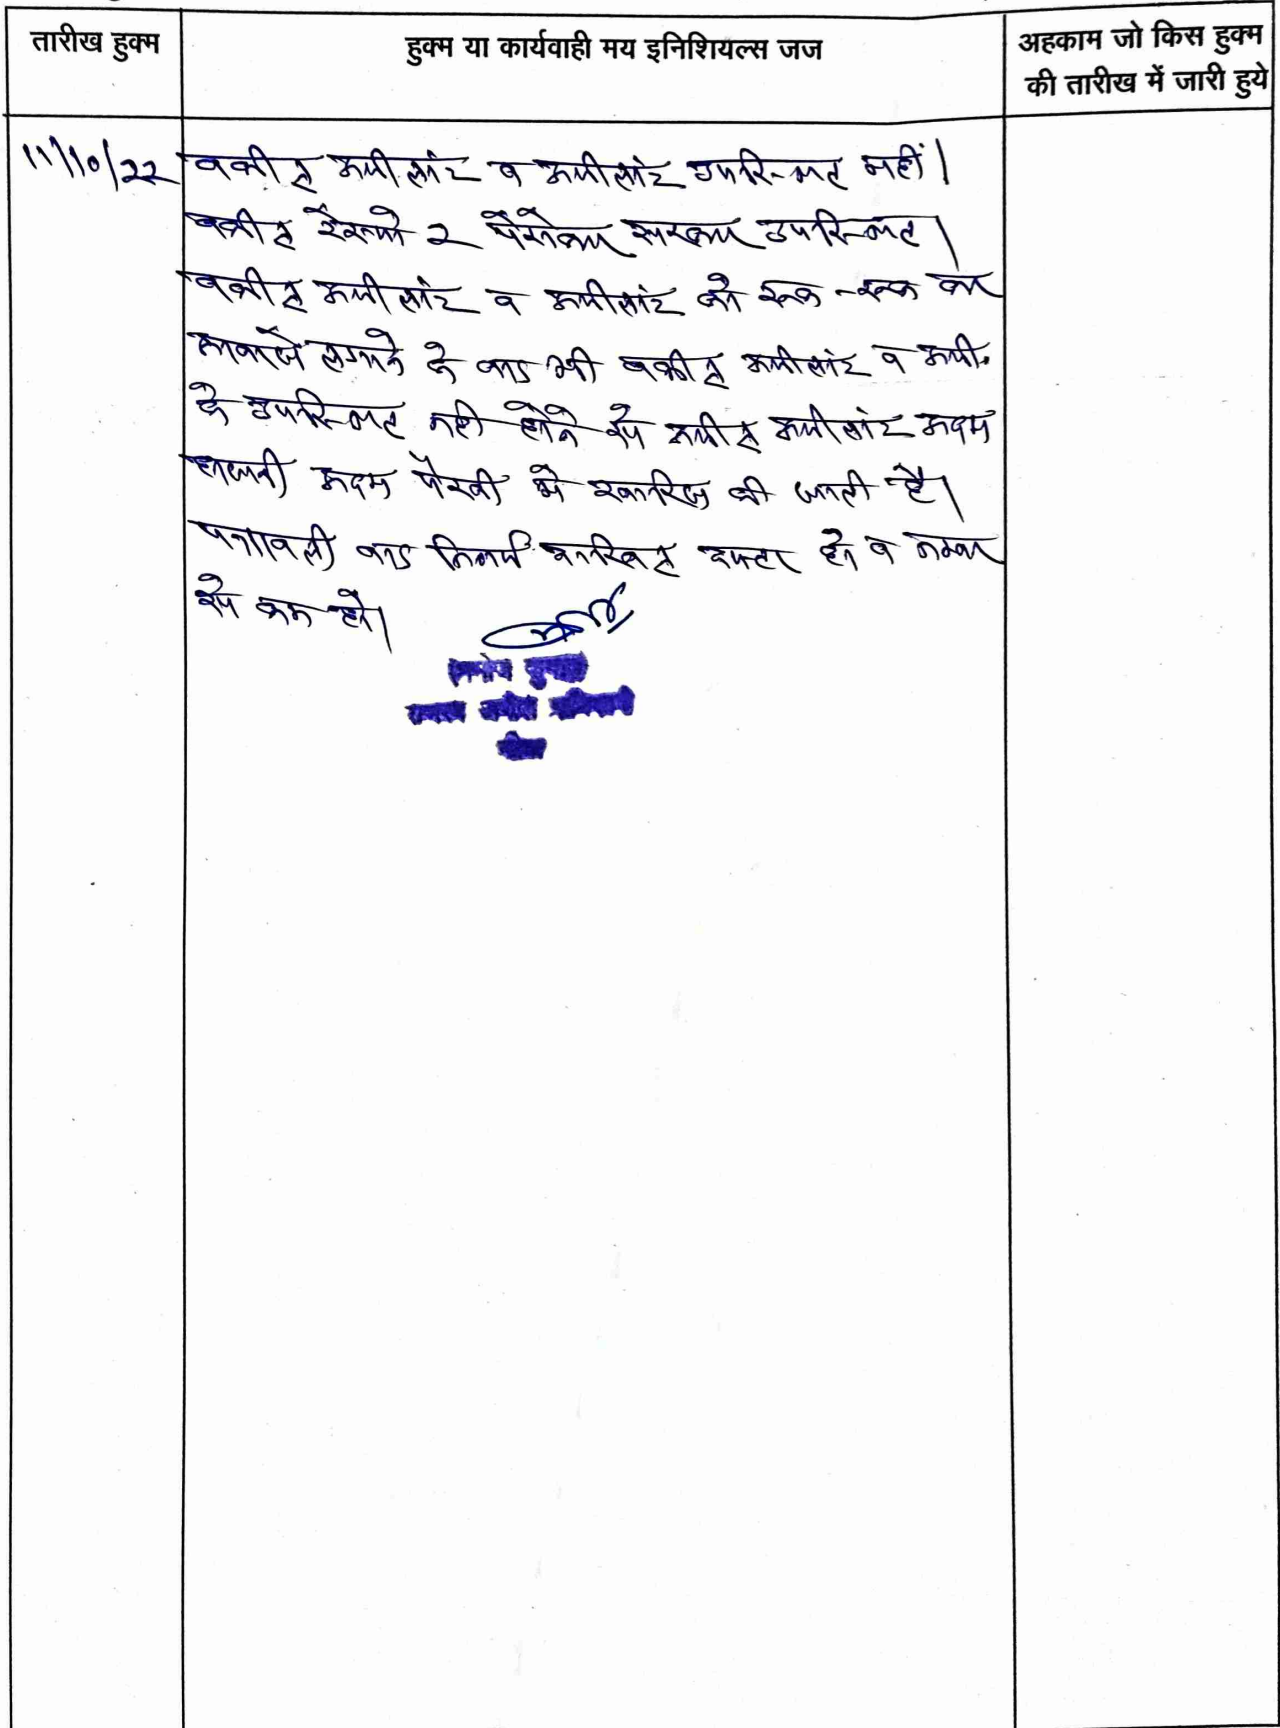 तारीख हुक्म
हुक्म या कार्यवाही मय इनिशियल्स जज
अहकाम जो किस हुक्म
की तारीख में जारी हुये
11/10/22
वकील अपीलांट व अपीलांट उपस्थित नहीं।
वकील रेस्पो 2 पैरोकार सरकार उपस्थित।
वकील अपीलांट व अपीलांट को रूक-रूक कर
आवाजें लगाने के बाद भी वकील अपीलांट व अपी.
के उपस्थित नही होने से अपील अपीलांट अदम
हाजरी अदम पैरवी में खारिज की जाती है।
पत्रावली बाद निर्णय दाखिल दफ्तर हो व नम्बर
से कम हो।